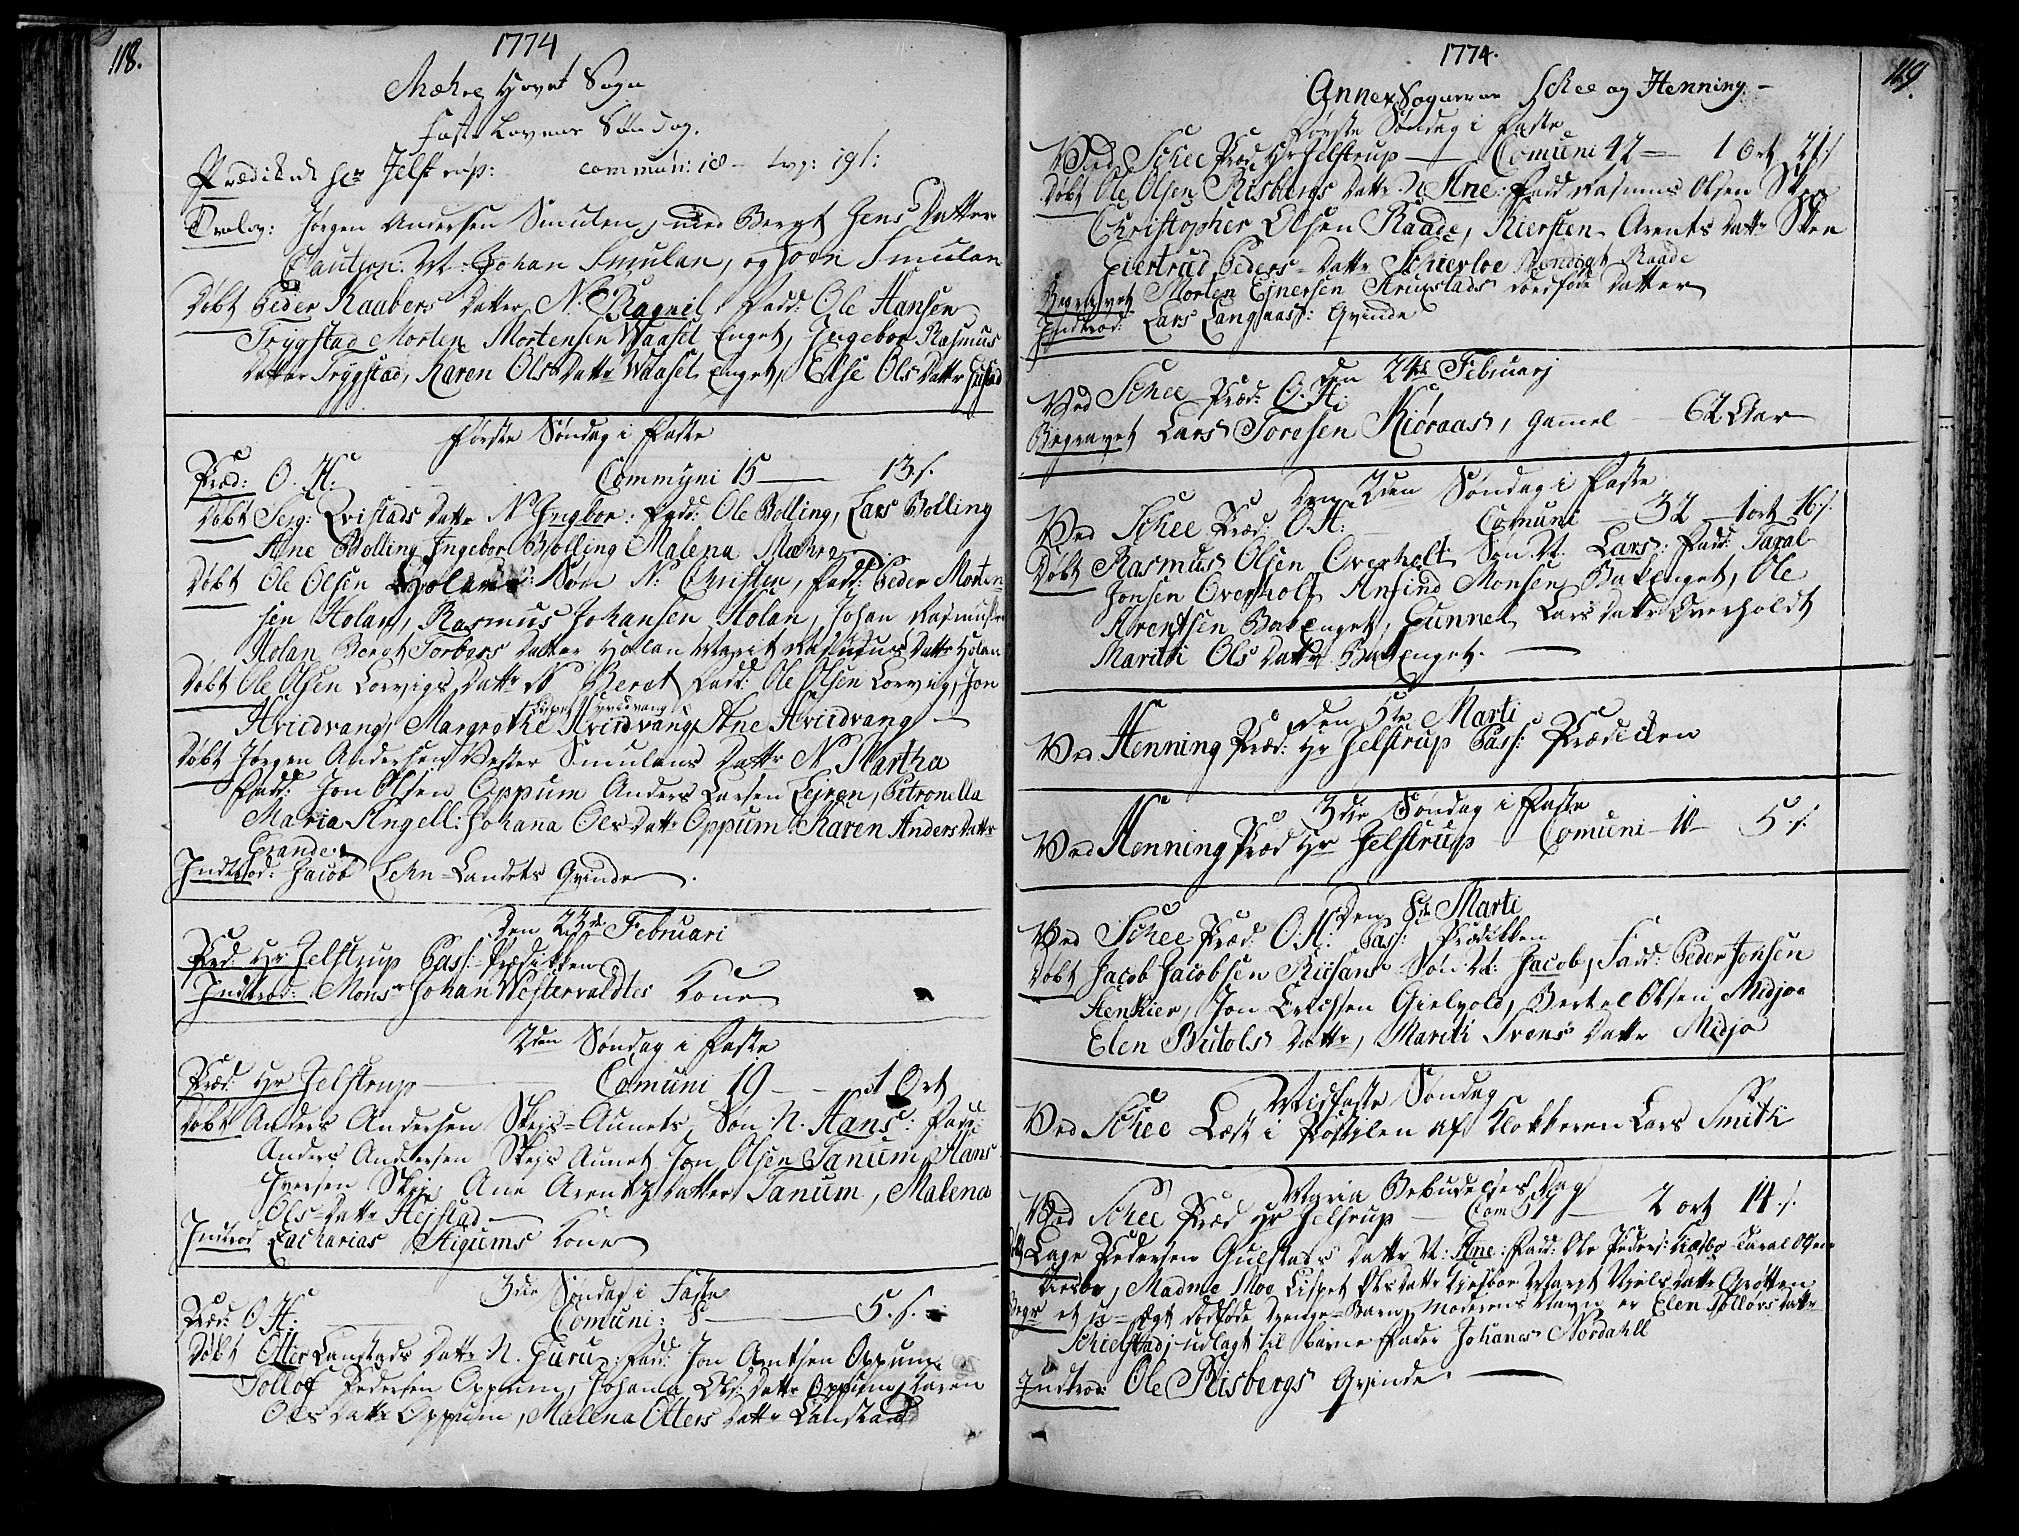 118.
1774
Mæhre Hovet Sogn
Faste Lavens Søndag.
Prædiket hr Jelstrup: commun: 18 — 19 s:
Trolov: Jørgen Andersen Smulen, med Beret Jens Datter
Caution: Johan Smulan, og John Smulan
Døbt Peder Raabers Datter N. Ragnil. Fadd: Ole Hansen
Trygstad Morten Mortensen Waasel Enget, Ingebor Rasmus
Datter Trygstad, Karen Ols Datr Waasel Enget, Else Ols Datr
Første Søndag i Faste
Præd: O. H: Commyni 15 — 13 s.
Døbt Qvistads Datr N. Ingbor: Fadd: Ole Bolling, Lars Bolling
Ane Bolling Ingebor Bolling Malena Mæhre
Døbt Ole Olsen Holans Søn N: Christen, Fadd: Peder Morten
sen Holan, Rasmus Johansen Holan, Johan Rasmusen
Holan Beret Torbers Datter Holan Marit Rasmus Datr Holan
Døbt Ole Olsen Lorvigs Datr N Beret Fadd: Ole Olsen Lorvig, Jon
Hviidvang Margrethe Hviidvang Ane Hviidvang
Døbt Jørgen Andersen Vester Smulans Datr N Martha
Fadd: Jon Olsen Oppum Anders Larsen Lejren, Petronella
Maria Angell: Johana Ols Datr Oppum Karen Anders Datr
Grande.
Indtrod: Jacob Lehn-Landets Qvinde.
Den 23de Februari
Præd: Hr Jelstrup Pass: Prædikken
Indtrod: Monsr Johan Westervaldtes Kone
2den Søndag i Faste
Præd: Hr Jelstrup — Comuni 19 — 1 Ort
Døbt Anders Andersen Skejs-Aunets Søn N. Hans: Fadd:
Anders Andersen Skejs Aunet Jon Olsen Tanum, Hans
Iversen Skeje Ane Arentz Datter Tanum, Malena
Ols-Datr Hejstad
Indtrod Zacharias Aigums Kone
3die Søndag i Faste
Præd: O. H: Comuni: 8 — 5. s.
Døbt Otter Lanstads Datr N. Guru: Fadd: Jon Arntsen Oppum
Tollof Pedersen Oppum, Johana Ols: Datr Oppum, Karen
Ols Datr Oppum, Malena Otters Datr Lanstad
119.
1774.
Annex Sognerne Schee og Henning —
Første Søndag i Faste
Ved Schee Præd Hr Jelstrup — Comuni 42 — 1 Ort 21 s
Døbt Ole Olsen Risbergs Datr N Ane: Fadd Rasmus Olsen Skee
Christopher Olsen Raade, Kiersten Arents Datr Skee
Giertrud Peders-Datr Schierloe Raade
Begravet Morten Ejnersen Krugstads dødføde Datter
Indtrod: Lars Langaass: Qvinde
Den 24de Februarj
Ved Schee Præd: O. H:
Begravet Lars Toresen Kiøraas, Gamel — 62 Aar
Den 2den Søndag i Faste
Ved Schee Præd: O. H: Comuni — 32 — 1 ort 16 s.
Døbt Rasmus Olsen Overholt Søn N. Lars: Fadd: Taral
Jonsen Overholt Anfind Monsen Bakenget, Ole
Arentsen Bakenget, Gunnel Lars Datr Overholdt
Mariti Ols Datr Bakenget. —
Den 3te Marti
Ved Henning Præd: Hr Jelstrup Pass: Prædicken
3die Søndag i Faste
Ved Henning Præd Hr Jelstrup — Comuni — 10 — 5. s.
Den 8de Marti
Ved Schee Præd: O. H: Pass: Prædikken
Døbt Jacob Jacobsen Riisans Søn N: Jacob, Fadd: Peder Jonsen
Stenkier, Jon Erichsen Gielvold, Bertel Olsen Midjo
Elen Butols Datr, Mariti Svens Datr Midjo
Midfaste Søndag
Ved Schee Læst i Postilen af Klokkeren Lars Smith
Maria Bebudelses Dag
Ved Schee Præd Hr Jelstrup — Com 57 — 2 ort 14. s.
Døbt Lage Pedersen Gulstads Datr N: Ane: Fadd: Ole Peders: Kiesbo Taral Olsen
Kiesbo, Madme Moe Lispet Ols Datr Kiesboe Maret Niels Datr Grøtten
Begr et u-Ægt dødføde Drenge-Barn, Moderens Navn er Elen Tolløvs Datr
Schielstad, udlagt til Barne Fader Johanes Nordahll
Indtrod: Ole Risbergs Qvinde. —